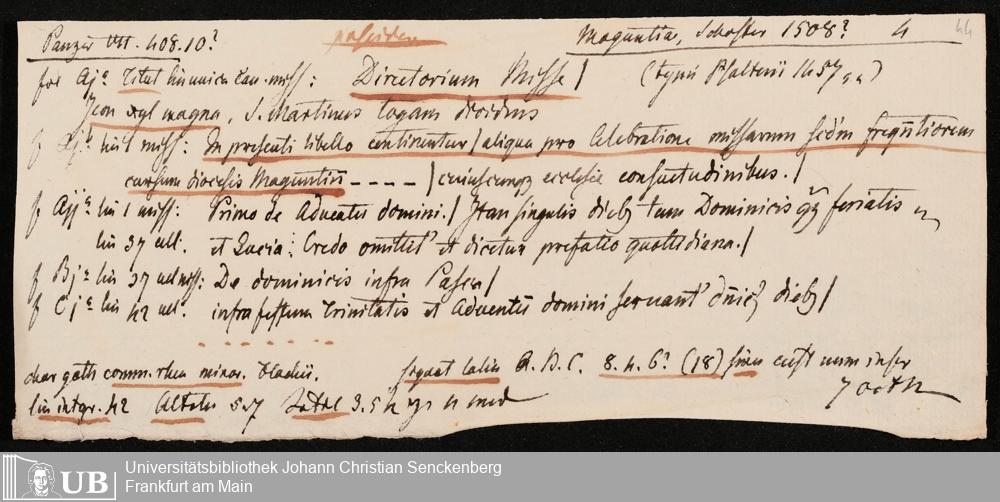 Panzer VII. 408.10? Maguntiae, Schoffer 1508? 4 44
fol Aja Titul lin unica miss: Directorium Misse / (typis Psalterii 1457
Icon xyl magna, S. Martinus togam dividens
f Aja lin 1 miss: In presenti libello continentur / aliqua pro celebratione missarum secdm frequentiorem
cursum diocesis Maguntin ---- / cuiuscunqz ecclesie consuetudinibus. /
f Aija lin 1 miss: Primo de Adventu domini. / singulis diebz tam Dominicis qz ferialis
lin 37 ult. et Lucia: Credo omittit' et dicetur prefatio quottidiana. /
f Bja lin 37 ult miss: De dominicis infra Pasca /
f Cja lin 42 ult. infra festum Trinitatis et Adventu domini servant' diebz /
char goth comm. rhen minor. signat latin A. B. C. 8. 4. 6? (18) sine cust num inscr
lin intgr. 42 5.7 Total 3.5
7 octk
Universitätsbibliothek Johann Christian Senckenberg
Frankfurt am Main
UB